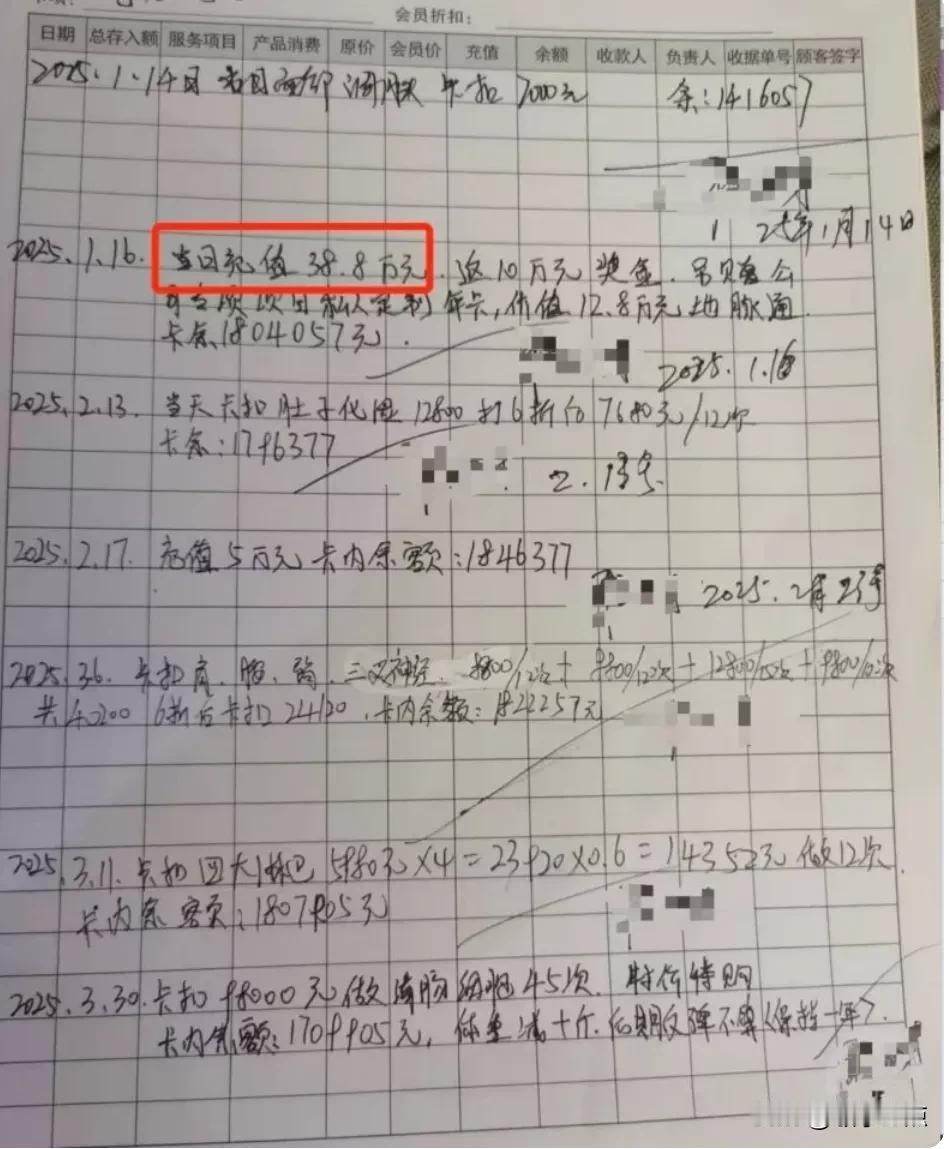 会员折扣：
日期 总存入额 服务项目 产品消费 原价 会员价 充值 余额 收款人 负责人 收据单号 顾客签字
2025.1.14日 卡扣 7000元 余:1416057
2025年1月14日
2025.1.16. 当日充值 38.8万元. 返10万元奖金.
年卡,价值12.8万元 地脉通
卡余.1804057元.
2025.1.16
2025.2.13. 当天卡扣肚子化湿 12800 打6折后 7680元/12次
卡余:1796377
2.13号
2025.2.17. 充值5万元 卡内余额:1846377
2025.2月23号
2025.3.6. 卡扣肩、腰、 三叉神经. 9800/12次+ 9800/12次+12800/12次+9800/12次
共40200 6折后卡扣24120,卡内余额:1822257元
2025.3.11.卡扣四大淋巴 5980元×4=23920×0.6=14352元 做12次
卡内余额:1807905元
2025.3.30.卡扣98000元做 45次. 特价特购
卡内余额:1709905元, 体重减十斤.后期反弹不算(保持一年).